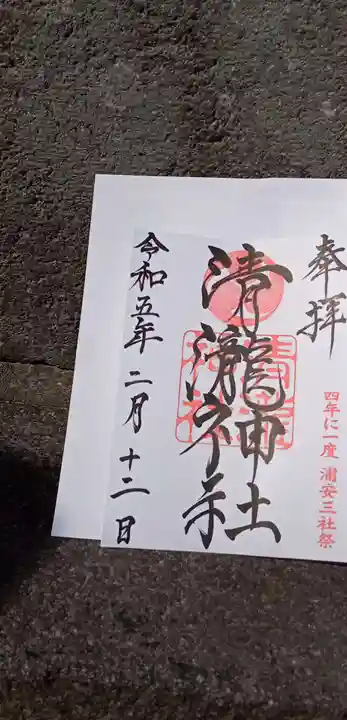 奉拝
四年に一度 浦安三社祭
清瀧神社
清瀧神社
令和五年 二月 十二日